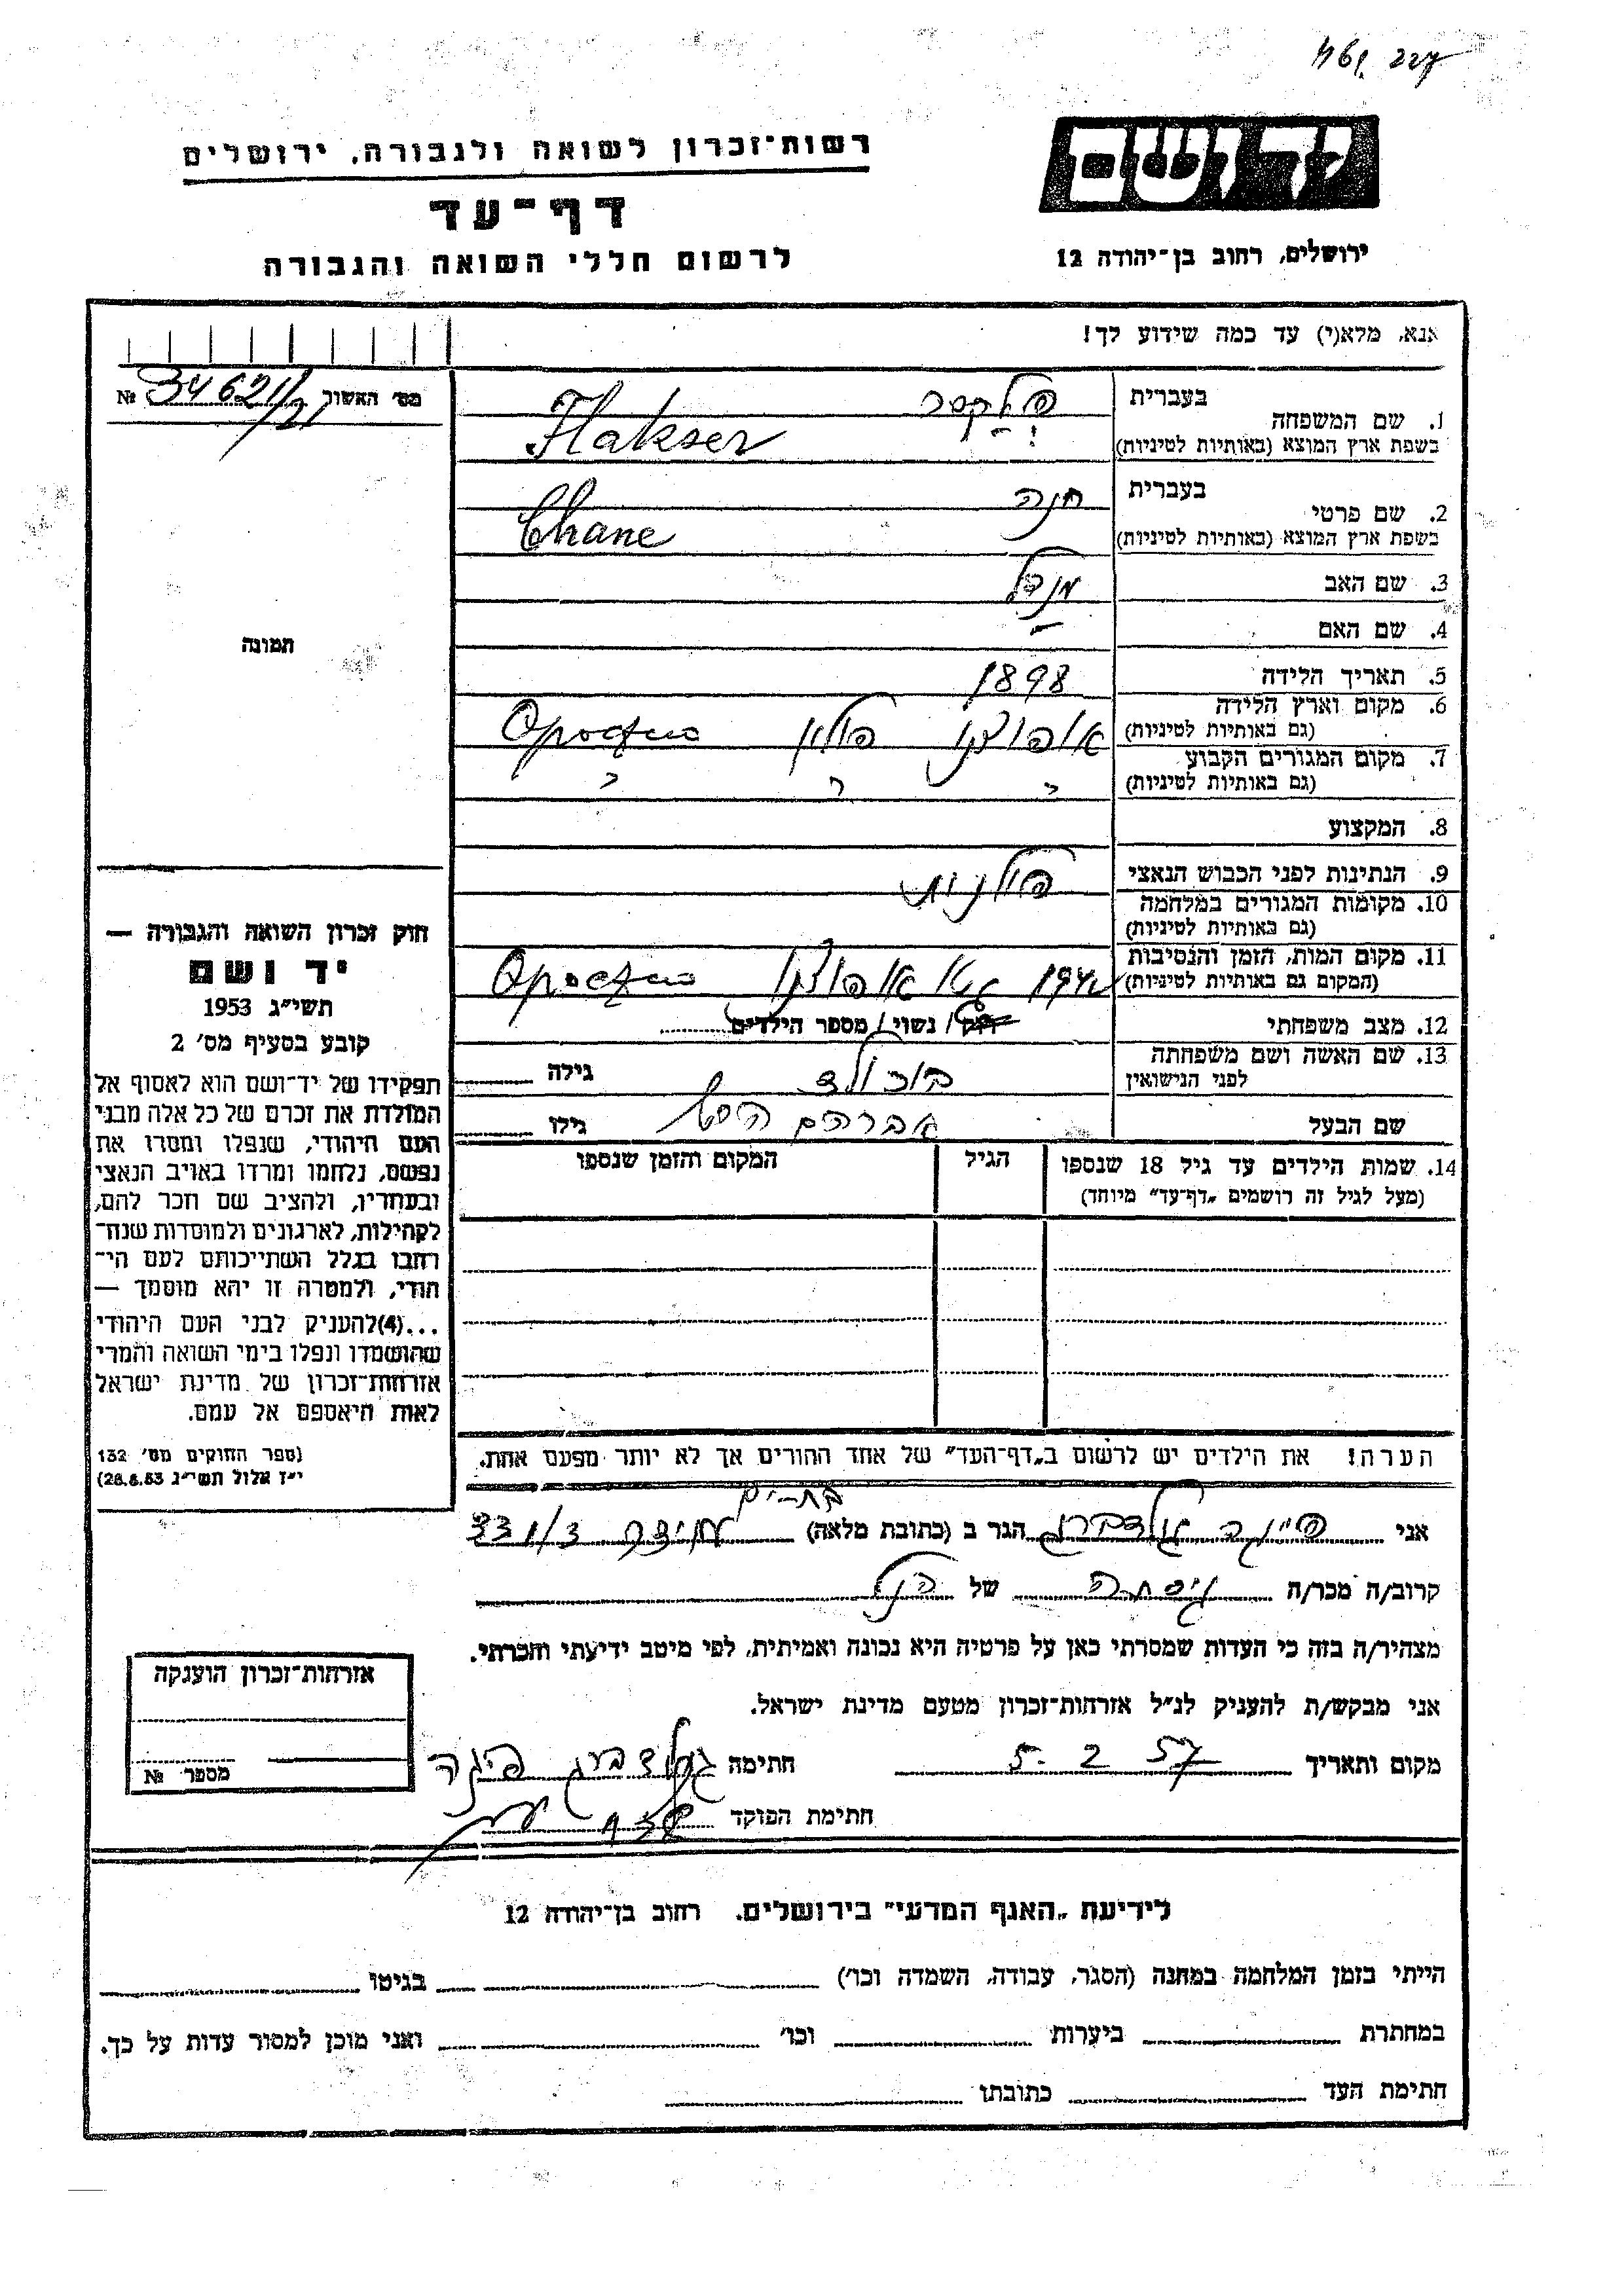 יד ושם
רשות־זכרון לשואה ולגבורה, ירושלים
דף־עד
לרשום חללי השואה והגבורה
ירושלים, רחוב בן־יהודה 12
אנא, מלא(י) עד כמה שידוע לך!
מס׳ האשור 34621/21 №
1. שם המשפחה בעברית פלקסר
בשפת ארץ המוצא (באותיות לטיניות) Flakser
2. שם פרטי בעברית חנה
בשפת ארץ המוצא (באותיות לטיניות) Chane
3. שם האב מנדל
4. שם האם –
5. תאריך הלידה 1898
6. מקום וארץ הלידה
(גם באותיות לטיניות) פולין
7. מקום המגורים הקבוע
(גם באותיות לטיניות)
8. המקצוע
9. הנתינות לפני הכבוש הנאצי פולנית
10. מקומות המגורים במלחמה
(גם באותיות לטיניות)
11. מקום המות, הזמן והנסיבות
(המקום גם באותיות לטיניות) 1942
12. מצב משפחתי רוק / נשוי / מספר הילדים
13. שם האשה ושם משפחתה
לפני הנישואין גילה
שם הבעל אברהם גילו
14. שמות הילדים עד גיל 18 שנספו
(מעל לגיל זה רושמים „דף־עד״ מיוחד)
הגיל
המקום והזמן שנספו
תמונה
חוק זכרון השואה והגבורה —
יד ושם
תשי״ג 1953
קובע בסעיף מס׳ 2
תפקידו של יד־ושם הוא לאסוף אל
המולדת את זכרם של כל אלה מבני
העם היהודי, שנפלו ומסרו את
נפשם, נלחמו ומרדו באויב הנאצי
ובעוזריו, ולהציב שם וזכר להם,
לקהילות, לארגונים ולמוסדות שנח־
רבו בגלל השתייכותם לעם הי־
הודי, ולמטרה זו יהא מוסמך —
...(4)להעניק לבני העם היהודי
שהושמדו ונפלו בימי השואה והמרי
אזרחות־זכרון של מדינת ישראל
לאות היאספם אל עמם.
(ספר החוקים מס׳ 132
י״ז אלול תשי״ג 28.8.53)
הערה! את הילדים יש לרשום ב„דף־העד״ של אחד ההורים אך לא יותר מפעם אחת.
בת־ים
אני גולדברג הגר ב (כתובת מלאה) 331/3
קרוב/ה מכר/ה גיסתה של הנ״ל
מצהיר/ה בזה כי העדות שמסרתי כאן על פרטיה היא נכונה ואמיתית, לפי מיטב ידיעתי והכרתי.
אני מבקש/ת להעניק לנ״ל אזרחות־זכרון מטעם מדינת ישראל.
מקום ותאריך 5. 2 57 חתימה גולדברג
חתימת הפוקד
אזרחות־זכרון הוענקה
מספר №
לידיעת „האגף המדעי״ בירושלים, רחוב בן־יהודה 12
הייתי בזמן המלחמה במחנה (הסגר, עבודה, השמדה וכו׳) בגיטו
במחתרת ביערות וכו׳ ואני מוכן למסור עדות על כך.
חתימת העד כתובתו